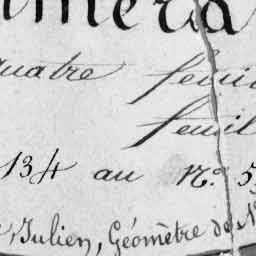 uméra
quatre feuil
feuil
134 au N.º 5
Julien, Géomètre de